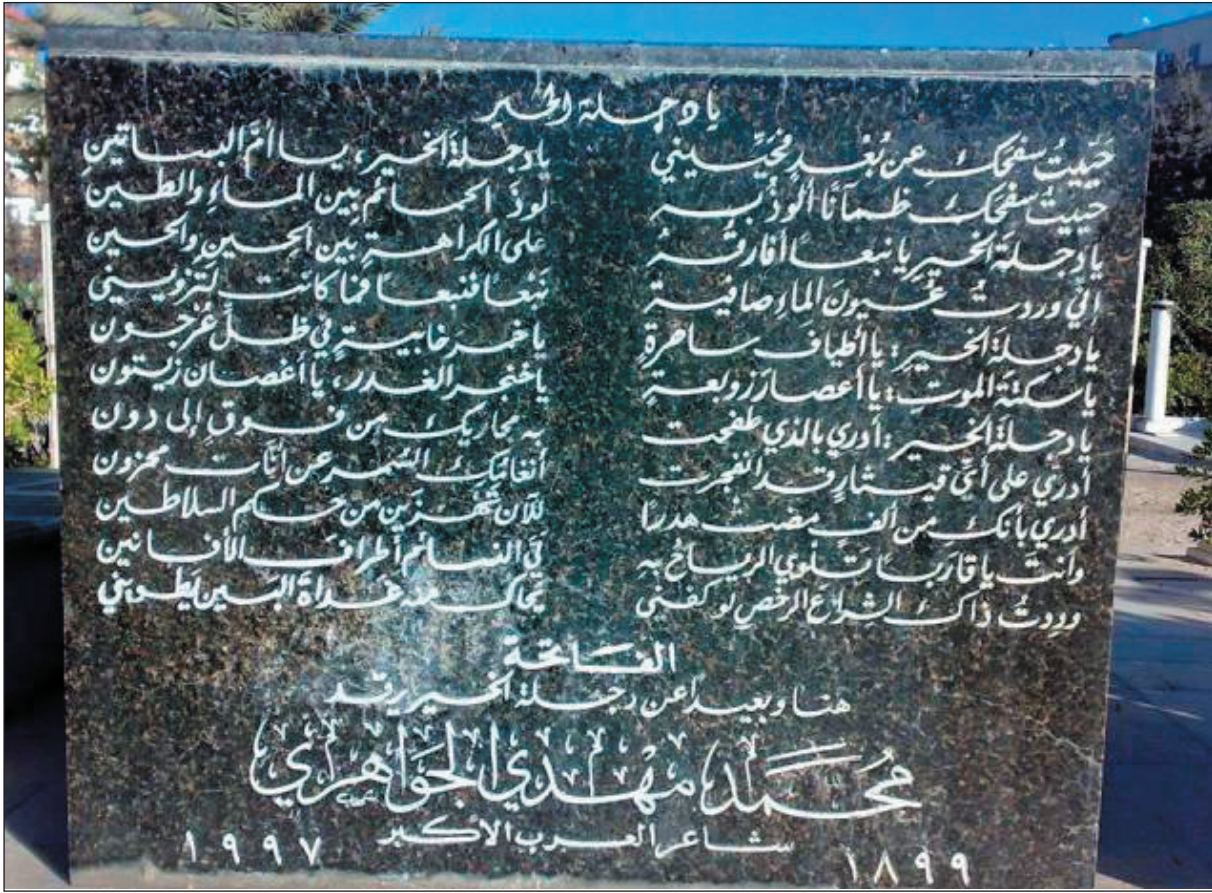 يا دجلة الخير
حَيّيتُ سفحكِ عن بُعْدٍ فحَيِّيني يا دجلةَ الخير، يا أمَّ البساتينِ
حييتُ سفحَكِ ظمآنًا ألوذُ به لوذَ الحمائمِ بين الماءِ والطين
يا دجلةَ الخيرِ يا نبعًا أفارقُهُ على الكراهةِ بين الحينِ والحين
إنّي وردتُ عُيونَ الماءِ صافيةً نَبعًا فنبعًا فما كانت لتَرويني
يا دجلةَ الخيرِ: يا أطيافَ ساحرةٍ يا خمرَ خابيةٍ في ظلِّ عُرجون
يا سكتةَ الموتِ: يا أعصارَ زوبعةٍ يا خنجرَ الغدر، يا أغصانَ زيتون
يا دجلةَ الخيرِ: أدري بالذي طفحت به مجاريكِ من فوقٍ إلى دون
أدري على أيِّ قيثارٍ قد انفجرت أنغامُكِ السُّمرُ عن أنّات محزون
أدري بأنكِ من ألفٍ مضت هدرًا للآن تَهْزَين من حكم السلاطين
وأنتَ يا قاربًا تَلوي الرياحُ به ليَّ النسائم أطرافَ الأفانين
ووددتُ ذاكَ الشراعَ الرخصَ لو كفني يُحاكُ منه غداةَ البينِ يَطويني
الفاتحة
هنا وبعيدا عن دجلة الخير يرقد
مُحمّد مهدي الجواهري
شاعر العرب الأكبر
١٨٩٩ ١٩٩٧